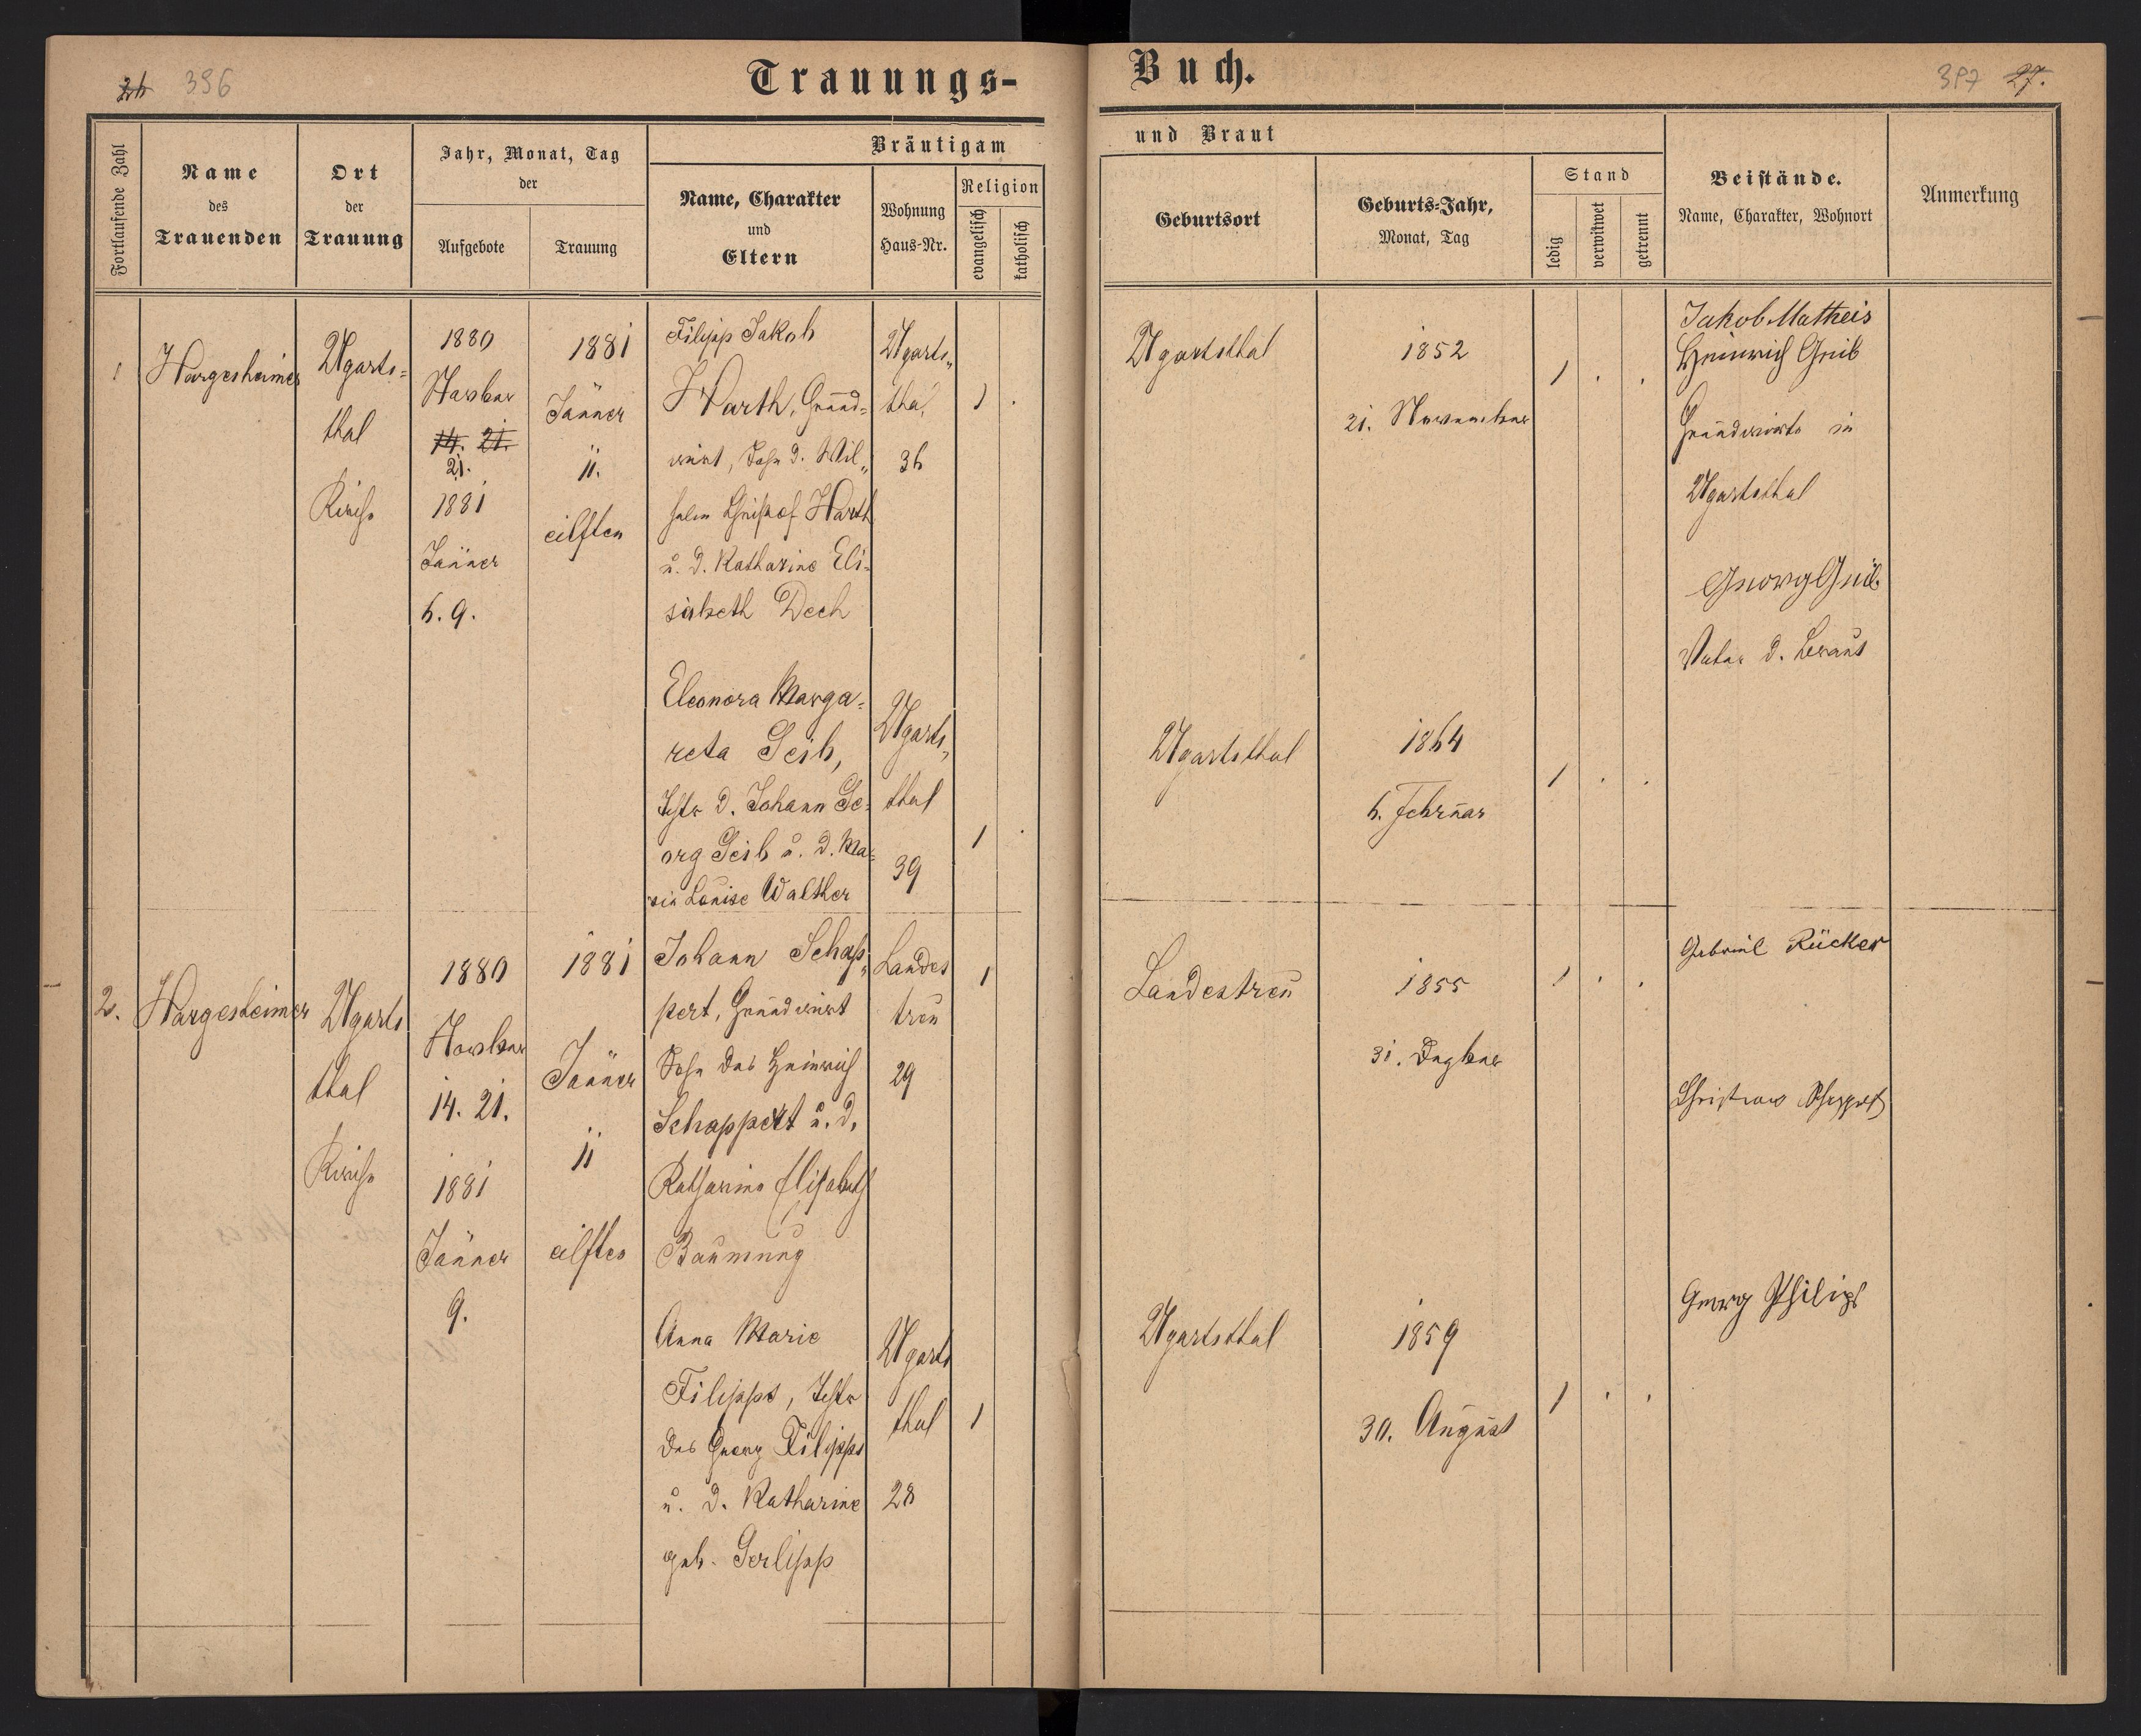 26 396
Trauungs-
Buch.
397 27.
Fortlaufende Zahl
Name
des
Trauenden
Ort
der
Trauung
Jahr, Monat, Tag
der
Aufgebote
Trauung
Bräutigam
Name, Charakter
und
Eltern
Wohnung
Haus-Nr.
Religion
evangelisch
katholisch
und Braut
Geburtsort
Geburts-Jahr,
Monat, Tag
Stand
ledig
verwitwet
getrennt
Beistände.
Name, Charakter, Wohnort
Anmerkung
1
Hargesheimer
Ugarts=
thal
Kirche
1880
14. 21.
21.
1881
Jänner
6. 9.
1881
Jänner
11.
eilften
Filipp Jakob
Harth, Grund=
wirt, Sohn d. Wil„
helm Christof Harth
u. d. Katharine Eli=
sabeth Dech
Ugarts„
thal
36
1 .
Ugartsthal
1852
21. November
1 . .
Jakob Matheis
Heinrich Geib
Grundwirte in
Ugartsthal
Georg Geib
Vater d. Braut
Eleonora Marga=
reta Geib,
Tchtr d. Johann Ge=
org Geib u. d. Ma=
ria Louise Walther
Ugarts„
thal
39
1 .
Ugartsthal
1864
6. Februar
1 . .
2.
Hargesheimer
Ugarts
thal
Kirche
1880
14. 21.
1881
Jänner
9.
1881
Jänner
11
eilften
Johann Schap„
pert, Grundwirt
Sohn des Heinrich
Schappert u. d.
Katharina Elisabeth
Baumung
Landes
treu
29
1
Landestreu
1855
31.
1 . .
Gabriel Rücker
Georg Philips
Anna Marie
Filipps, Tchtr
des Georg Filipps
u. d. Katharine
geb. Gerlipp
Ugarts
thal
28
1
Ugartsthal
1859
30. August
1 . .